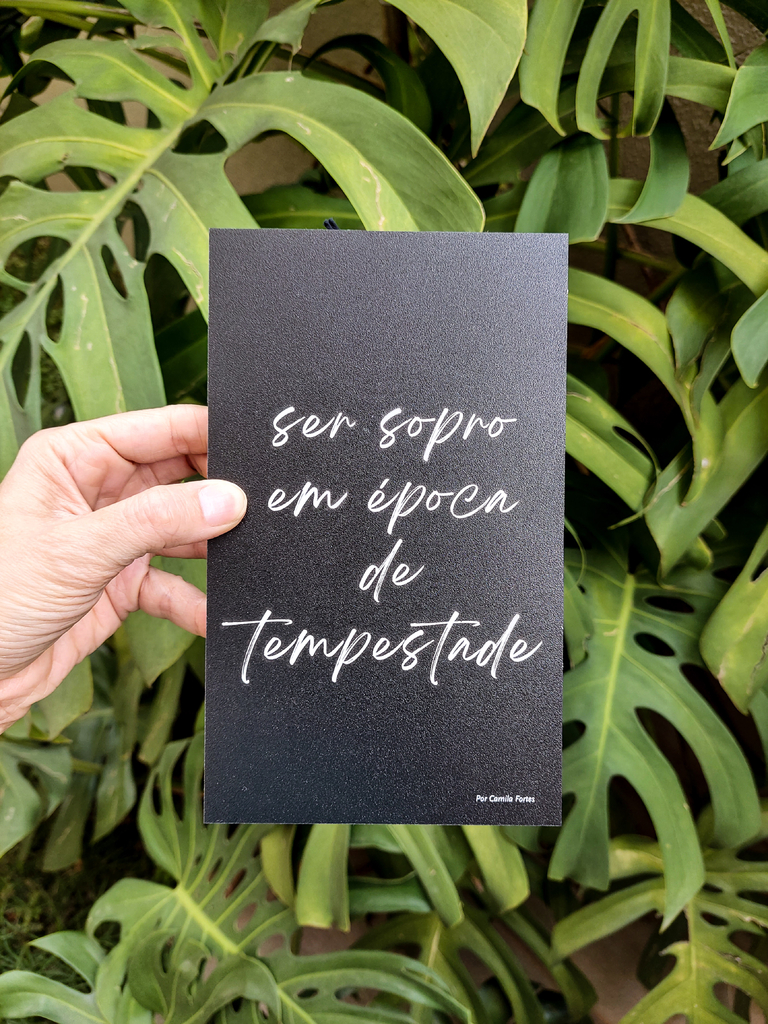 ser sopro
em época
de
tempestade
Por Camila Fortes